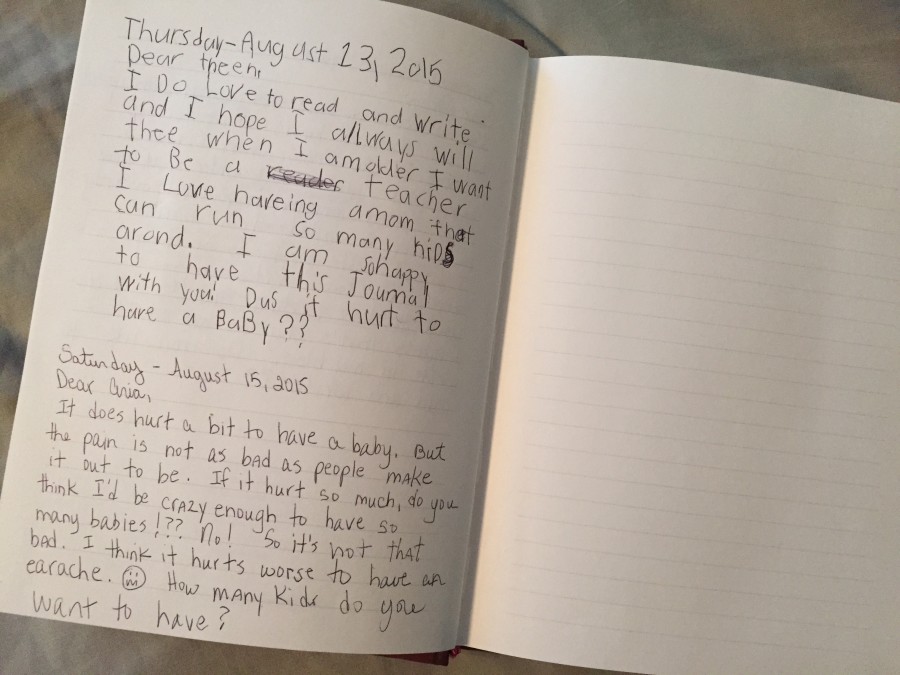 Thursday-August 13, 2015
Dear theen,
I Do Love to read and write
and I hope I allways will
thee when I am older I want
to Be a reader teacher
I Love haveing amom that
can run so many kiDS
arond. I am sohappy
to have this Journal
with you! Dus it hurt to
have a BaBy??
Saturday - August 15, 2015
Dear Ania,
It does hurt a bit to have a baby. But
the pain is not as bAd as people mAke
it out to be. If it hurt so much, do you
think I'd be crAzy enough to have so
many babies!?? No! So it's not thAt
bAd. I think it hurts worse to have an
earache. How mAny kids do you
want to have?